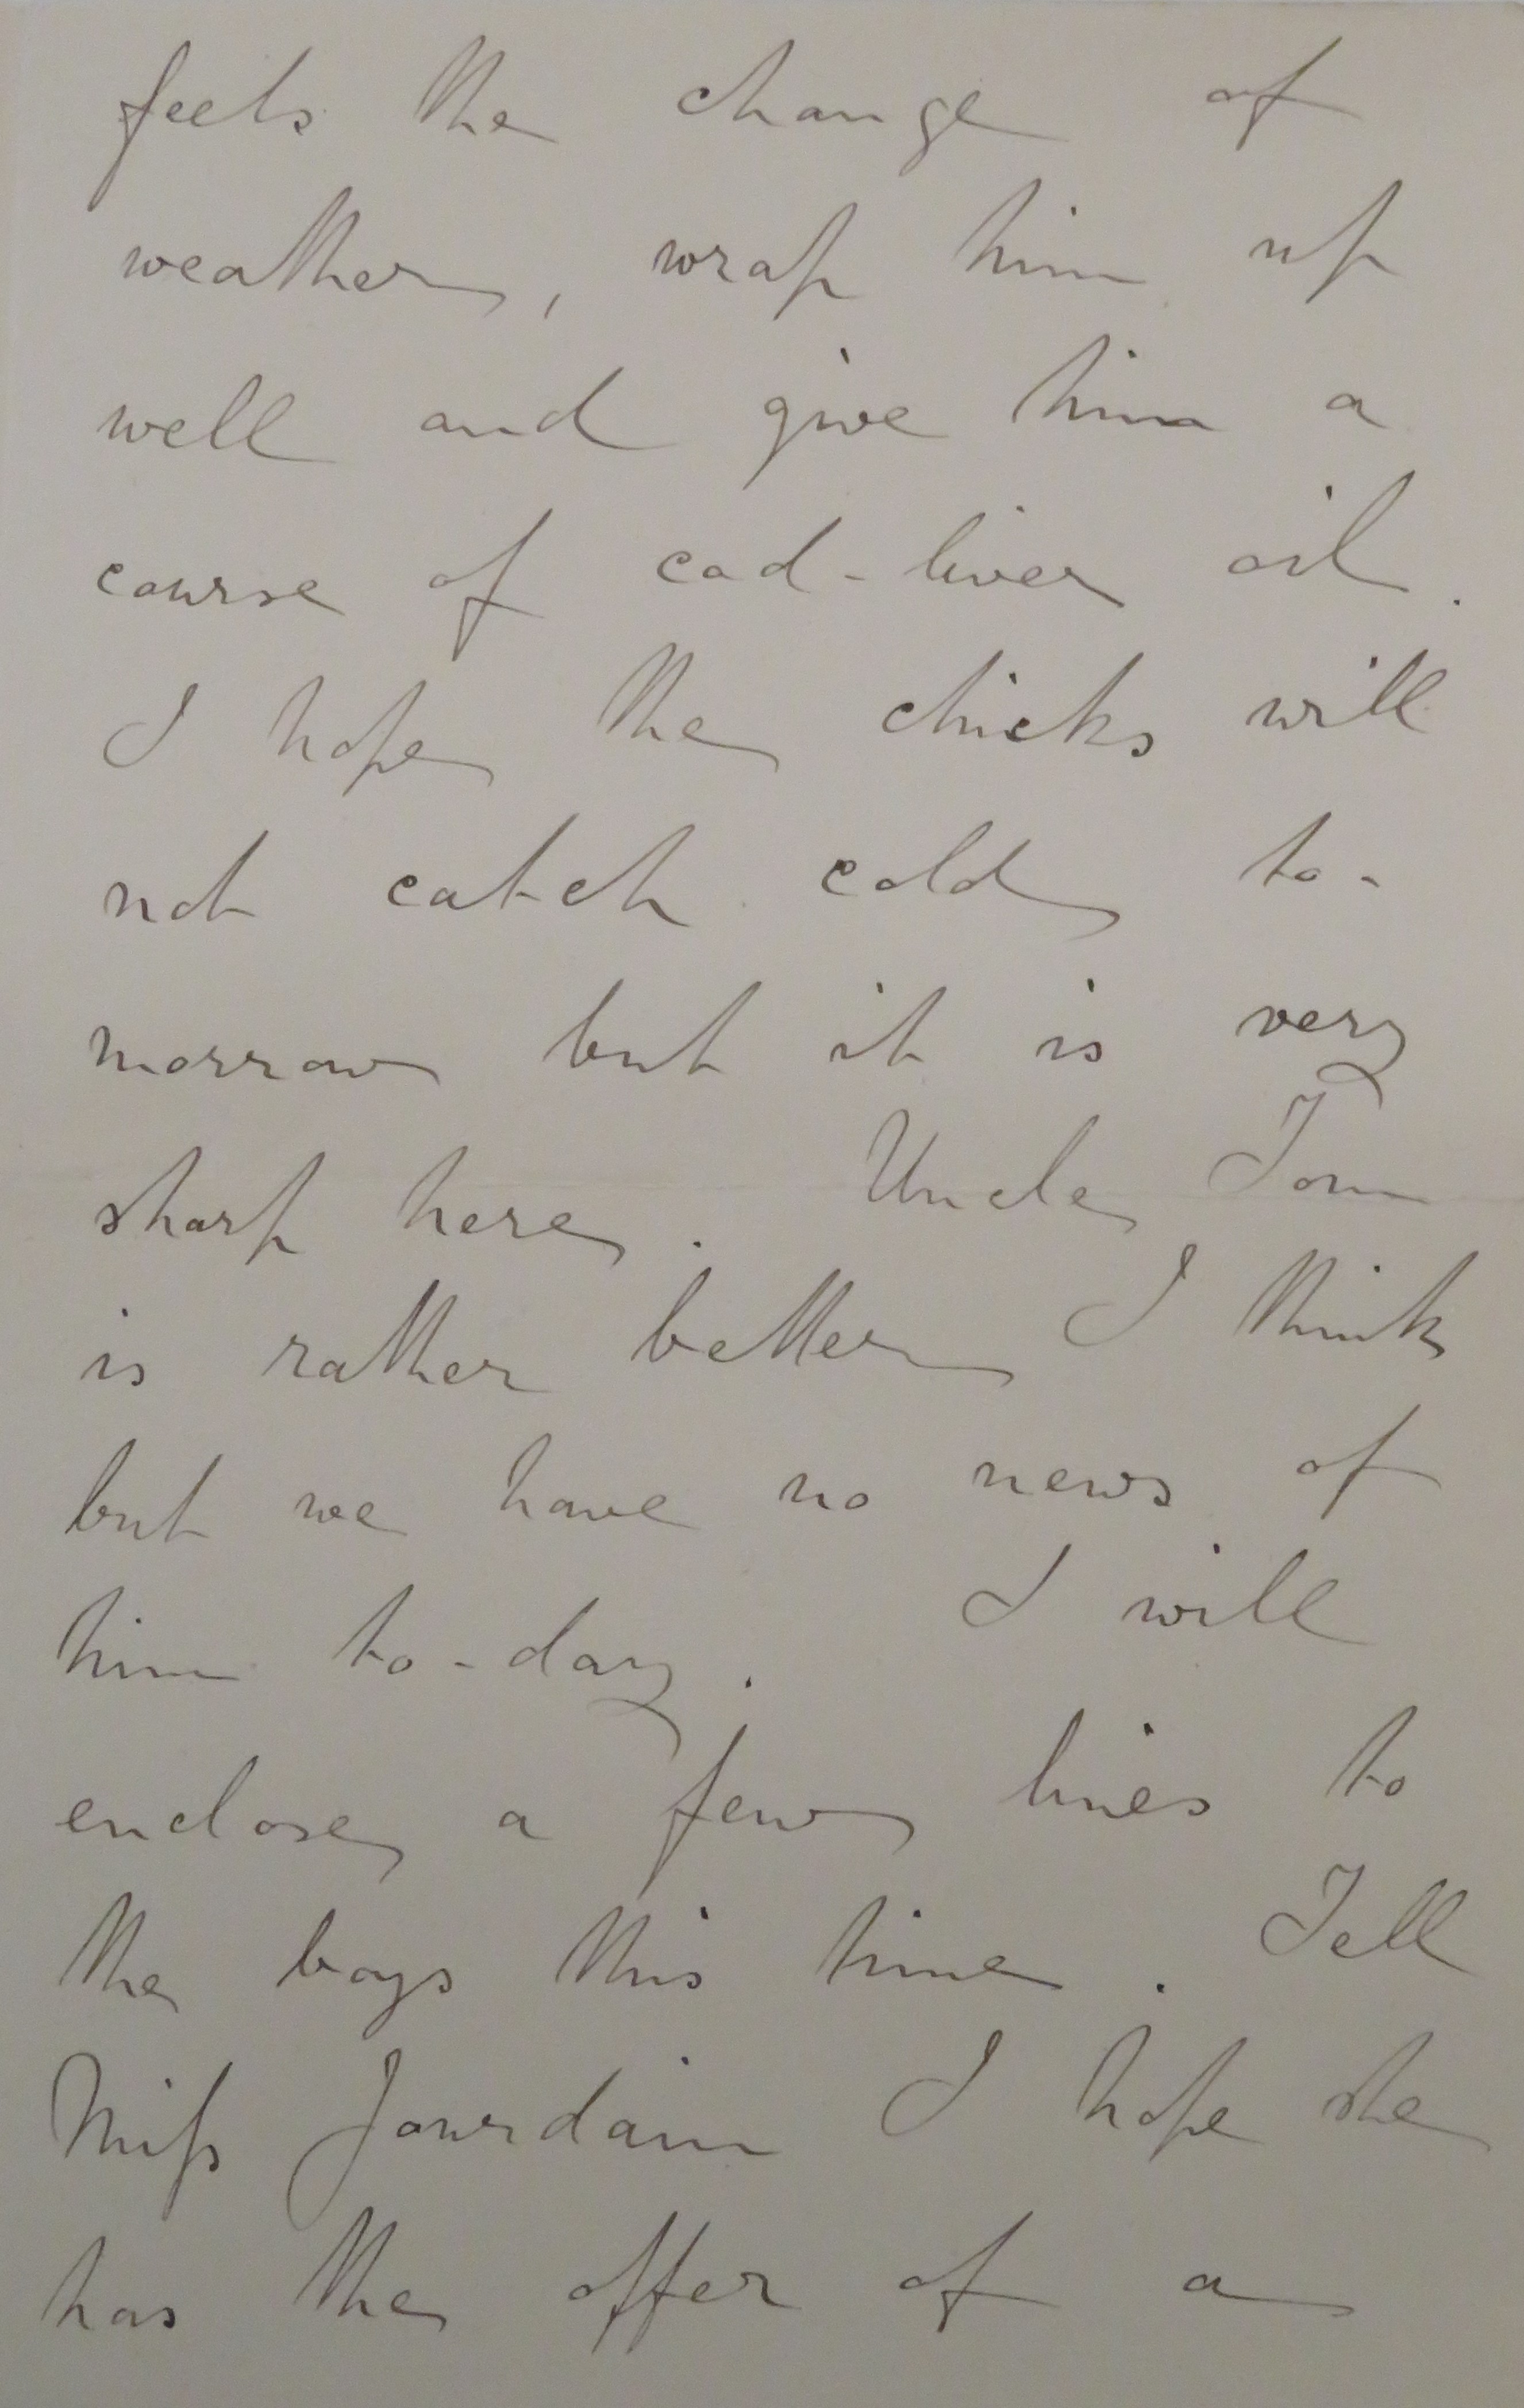 feels the change of
weather, wrap him up
well and give him a
course of cod-liver oil.
I hope the chicks will
not catch cold to-
morrow but it is very
sharp here. Uncle Tom
is rather better I think
but we have no news of
him to-day. I will
enclose a few lines to
the boys this time. Tell
Miſs Jourdain I hope she
has the offer of a